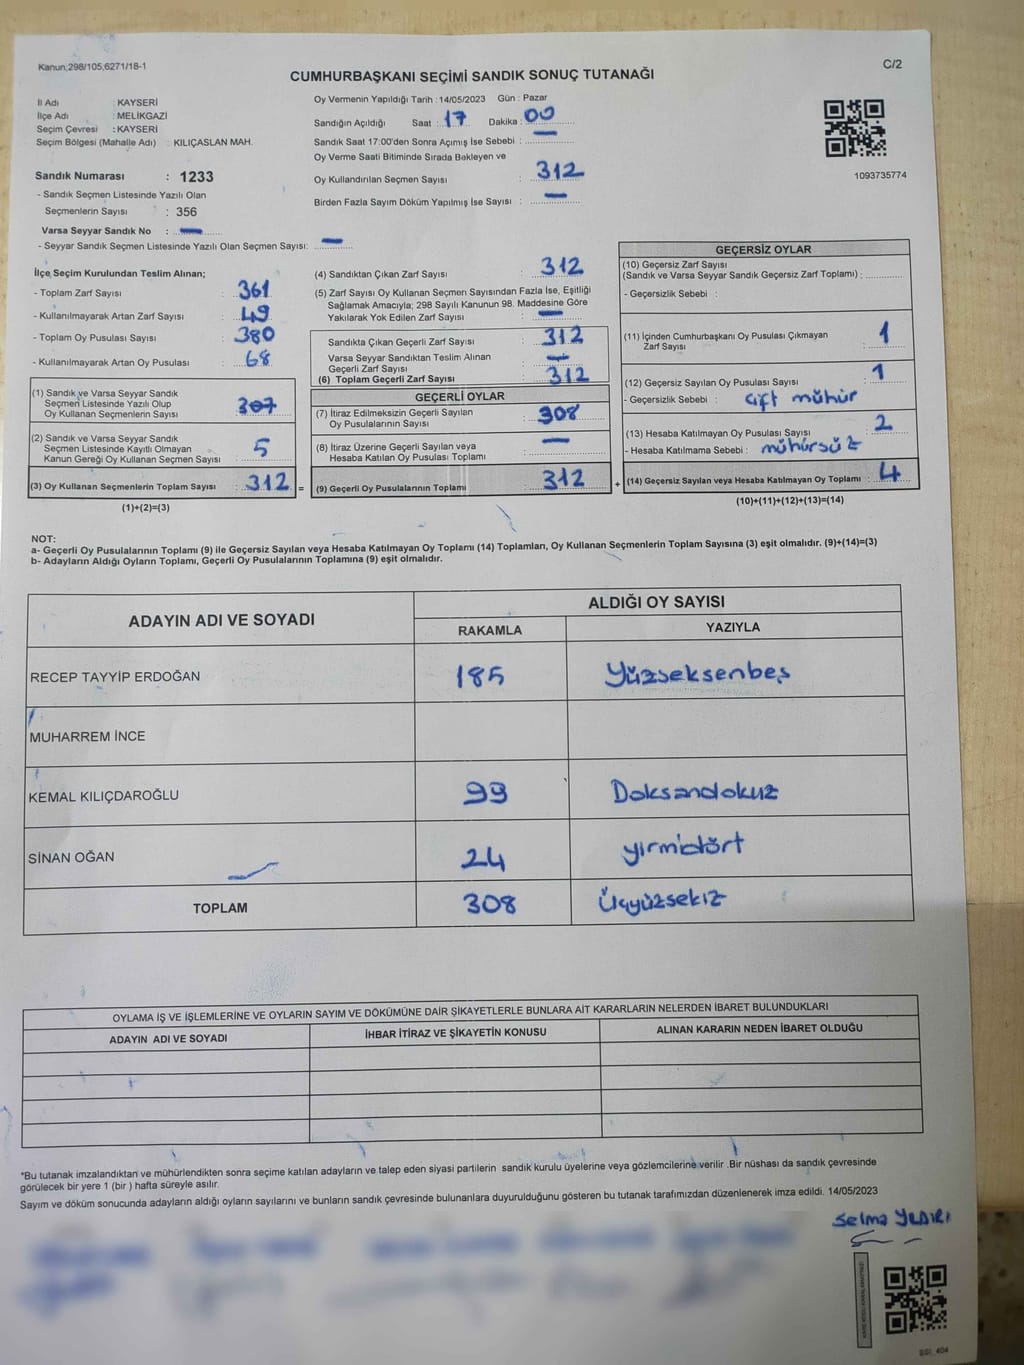 Kanun;298/105,6271/18-1
C/2
CUMHURBAŞKANI SEÇİMİ SANDIK SONUÇ TUTANAĞI
İl Adı : KAYSERİ
İlçe Adı : MELİKGAZİ
Seçim Çevresi : KAYSERİ
Seçim Bölgesi (Mahalle Adı) : KILIÇASLAN MAH.
Sandık Numarası : 1233
- Sandık Seçmen Listesinde Yazılı Olan
Seçmenlerin Sayısı : 356
Varsa Seyyar Sandık No : —
- Seyyar Sandık Seçmen Listesinde Yazılı Olan Seçmen Sayısı: —
Oy Vermenin Yapıldığı Tarih : 14/05/2023 Gün : Pazar
Sandığın Açıldığı Saat : 17 Dakika : 00
Sandık Saat 17:00'den Sonra Açımış İse Sebebi : —
Oy Verme Saati Bitiminde Sırada Bekleyen ve
Oy Kullandırılan Seçmen Sayısı : 312
Birden Fazla Sayım Döküm Yapılmış İse Sayısı : —
1093735774
İlçe Seçim Kurulundan Teslim Alınan;
- Toplam Zarf Sayısı : 361
- Kullanılmayarak Artan Zarf Sayısı : 49
- Toplam Oy Pusulası Sayısı : 380
- Kullanılmayarak Artan Oy Pusulası : 68
(1) Sandık ve Varsa Seyyar Sandık
Seçmen Listesinde Yazılı Olup
Oy Kullanan Seçmenlerin Sayısı : 307
(2) Sandık ve Varsa Seyyar Sandık
Seçmen Listesinde Kayıtlı Olmayan
Kanun Gereği Oy Kullanan Seçmen Sayısı : 5
(3) Oy Kullanan Seçmenlerin Toplam Sayısı : 312 =
(1)+(2)=(3)
(4) Sandıktan Çıkan Zarf Sayısı : 312
(5) Zarf Sayısı Oy Kullanan Seçmen Sayısından Fazla İse, Eşitliği
Sağlamak Amacıyla; 298 Sayılı Kanunun 98. Maddesine Göre
Yakılarak Yok Edilen Zarf Sayısı : —
Sandıkta Çıkan Geçerli Zarf Sayısı : 312
Varsa Seyyar Sandıktan Teslim Alınan
Geçerli Zarf Sayısı : —
(6) Toplam Geçerli Zarf Sayısı : 312
GEÇERLİ OYLAR
(7) İtiraz Edilmeksizin Geçerli Sayılan
Oy Pusulalarının Sayısı : 308
(8) İtiraz Üzerine Geçerli Sayılan veya
Hesaba Katılan Oy Pusulası Toplamı : —
(9) Geçerli Oy Pusulalarının Toplamı : 312 +
GEÇERSİZ OYLAR
(10) Geçersiz Zarf Sayısı
(Sandık ve Varsa Seyyar Sandık Geçersiz Zarf Toplamı) :
- Geçersizlik Sebebi :
(11) İçinden Cumhurbaşkanı Oy Pusulası Çıkmayan
Zarf Sayısı : 1
(12) Geçersiz Sayılan Oy Pusulası Sayısı : 1
- Geçersizlik Sebebi : Çift mühür
(13) Hesaba Katılmayan Oy Pusulası Sayısı : 2
- Hesaba Katılmama Sebebi : mühürsüz
(14) Geçersiz Sayılan veya Hesaba Katılmayan Oy Toplamı : 4
(10)+(11)+(12)+(13)=(14)
NOT:
a- Geçerli Oy Pusulalarının Toplamı (9) ile Geçersiz Sayılan veya Hesaba Katılmayan Oy Toplamı (14) Toplamları, Oy Kullanan Seçmenlerin Toplam Sayısına (3) eşit olmalıdır. (9)+(14)=(3)
b- Adayların Aldığı Oyların Toplamı, Geçerli Oy Pusulalarının Toplamına (9) eşit olmalıdır.
ADAYIN ADI VE SOYADI
ALDIĞI OY SAYISI
RAKAMLA YAZIYLA
RECEP TAYYİP ERDOĞAN 185 Yüzseksenbeş
MUHARREM İNCE
KEMAL KILIÇDAROĞLU 99 Doksandokuz
SİNAN OĞAN 24 yirmidört
TOPLAM 308 Üçyüzsekiz
OYLAMA İŞ VE İŞLEMLERİNE VE OYLARIN SAYIM VE DÖKÜMÜNE DAİR ŞİKAYETLERLE BUNLARA AİT KARARLARIN NELERDEN İBARET BULUNDUKLARI
ADAYIN ADI VE SOYADI İHBAR İTİRAZ VE ŞİKAYETİN KONUSU ALINAN KARARIN NEDEN İBARET OLDUĞU
*Bu tutanak imzalandıktan ve mühürlendikten sonra seçime katılan adayların ve talep eden siyasi partilerin sandık kurulu üyelerine veya gözlemcilerine verilir .Bir nüshası da sandık çevresinde
görülecek bir yere 1 (bir ) hafta süreyle asılır.
Sayım ve döküm sonucunda adayların aldığı oyların sayılarını ve bunların sandık çevresinde bulunanlara duyurulduğunu gösteren bu tutanak tarafımızdan düzenlenerek imza edildi. 14/05/2023
Selma